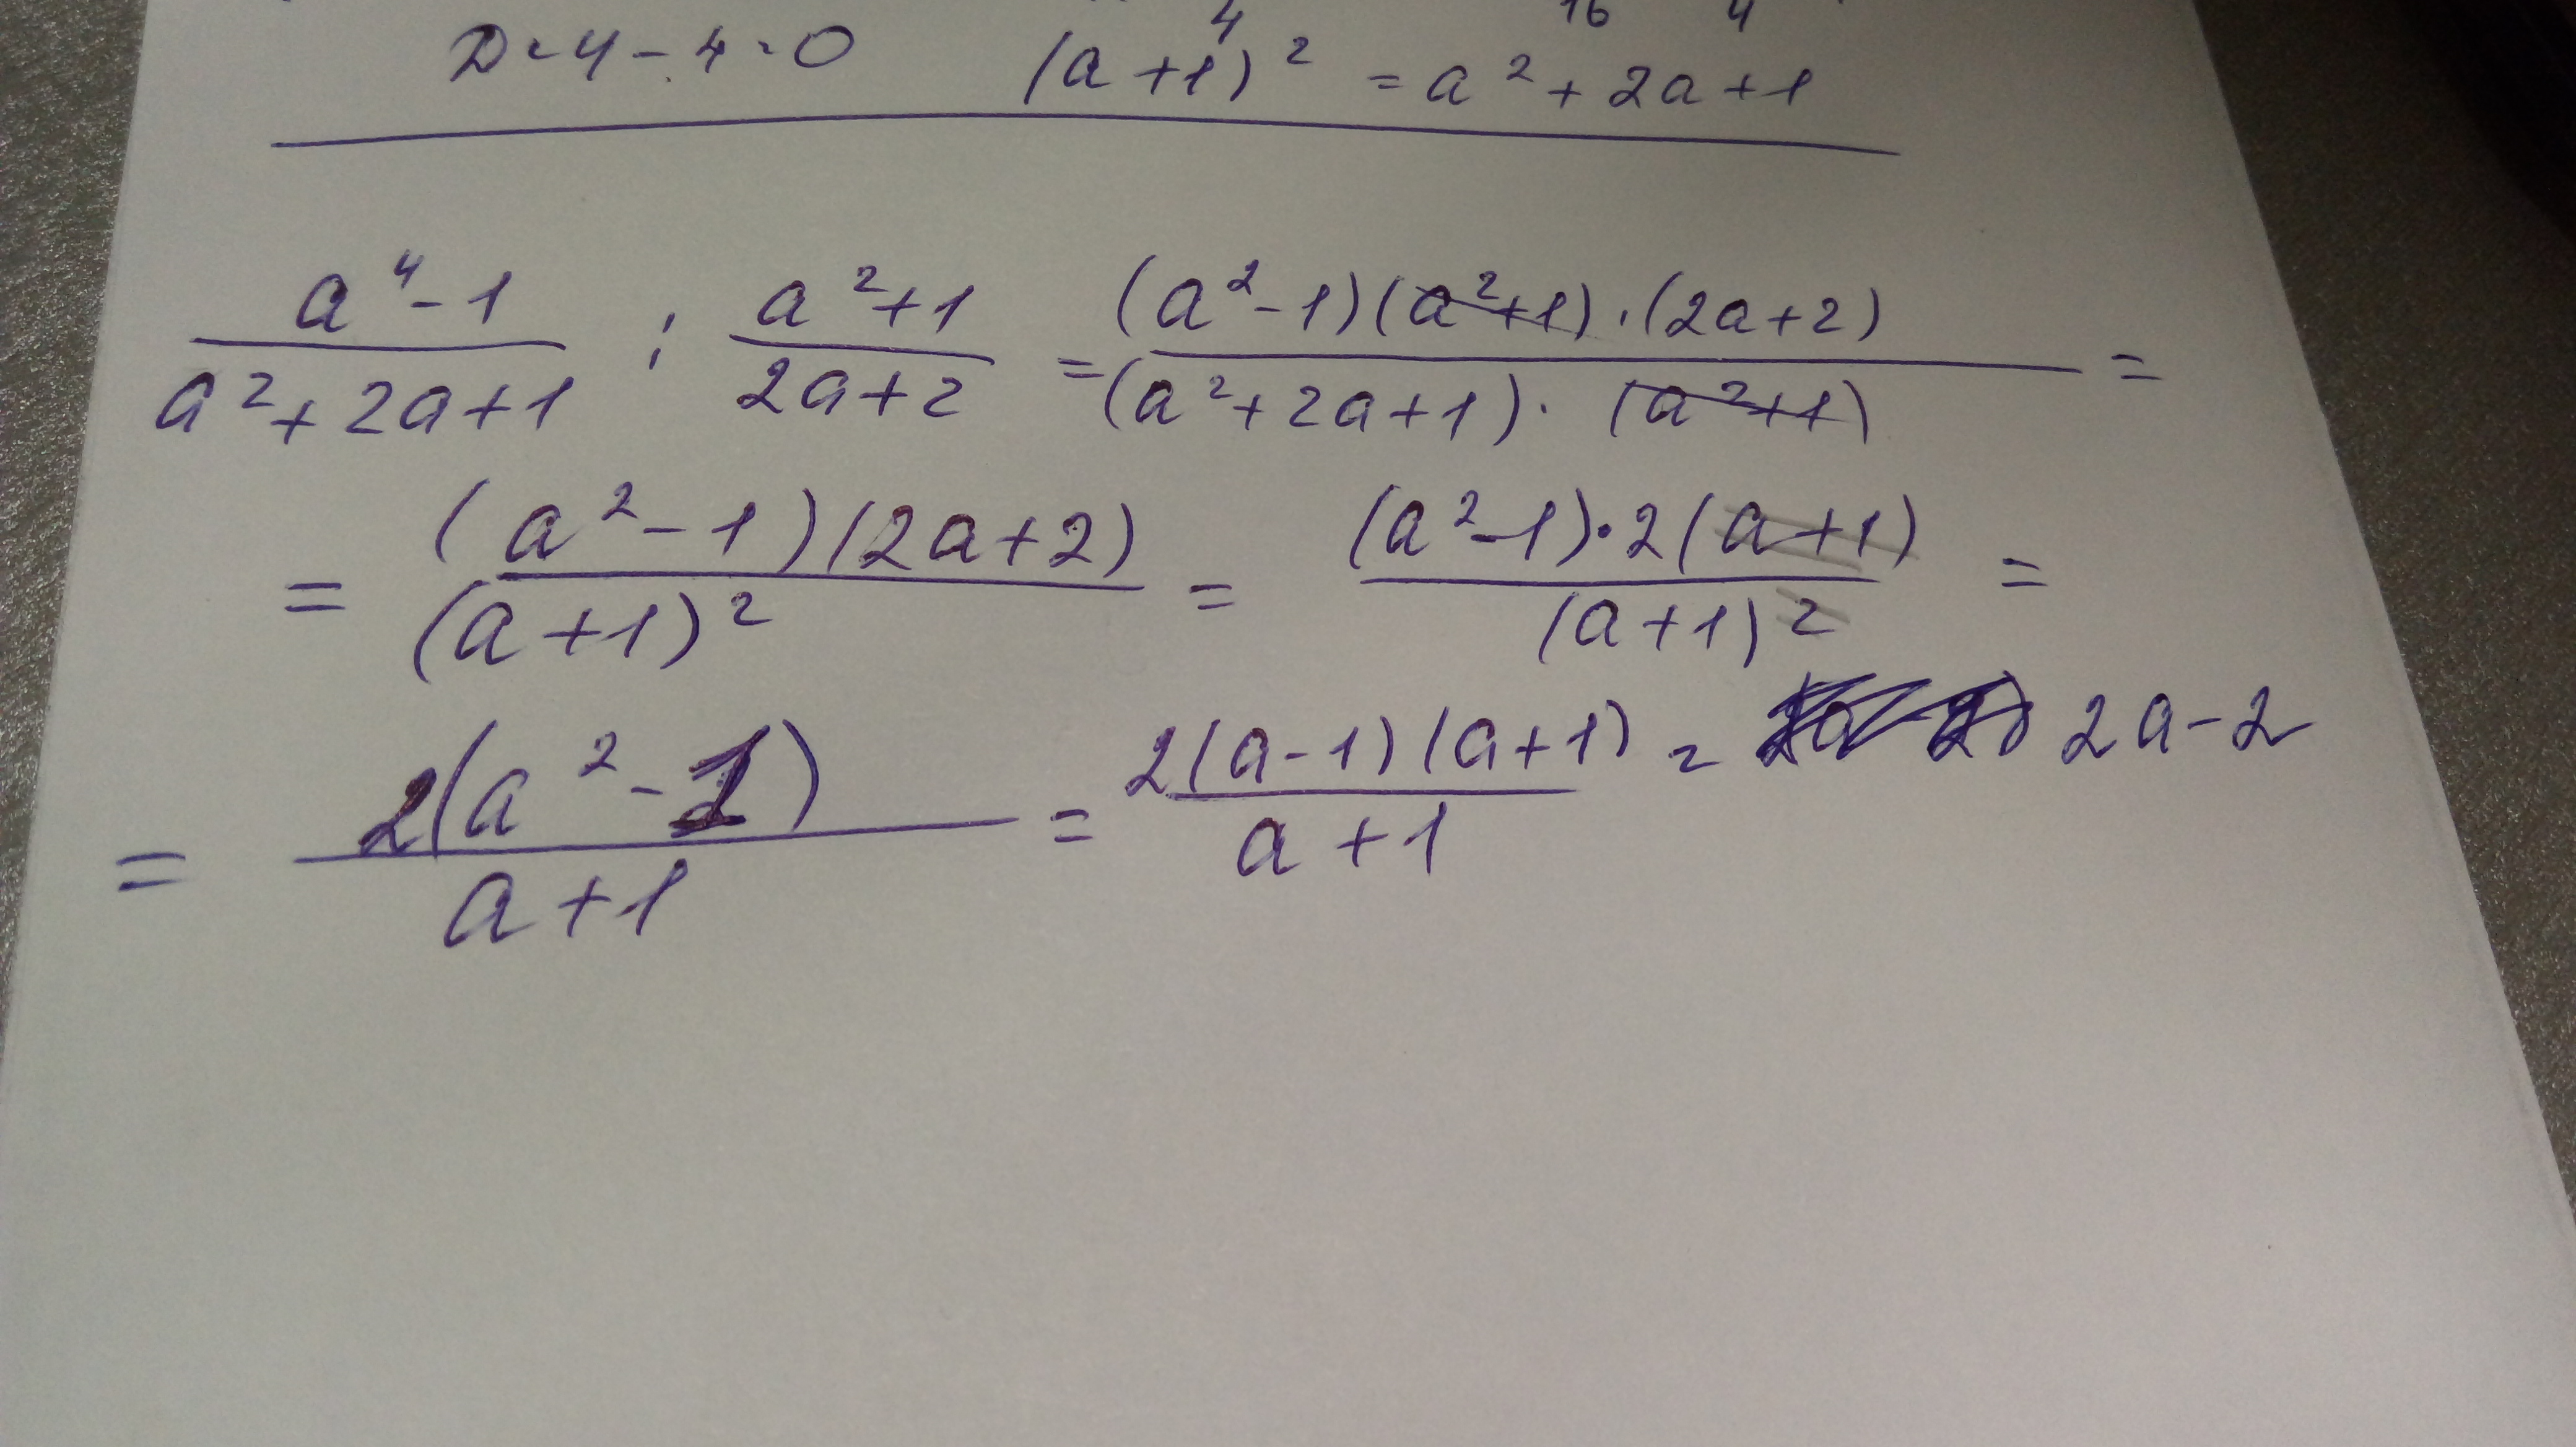 4 16 4
D = 4 - 4 = 0 (a+1)² = a² + 2a + 1
a⁴-1 / a²+2a+1 : a²+1 / 2a+2 = (a²-1)(a²+1)·(2a+2) / (a²+2a+1)·(a²+1) =
= (a²-1)(2a+2) / (a+1)² = (a²-1)·2(a+1) / (a+1)² =
= 2(a²-1) / a+1 = 2(a-1)(a+1) / a+1 = 2a-2